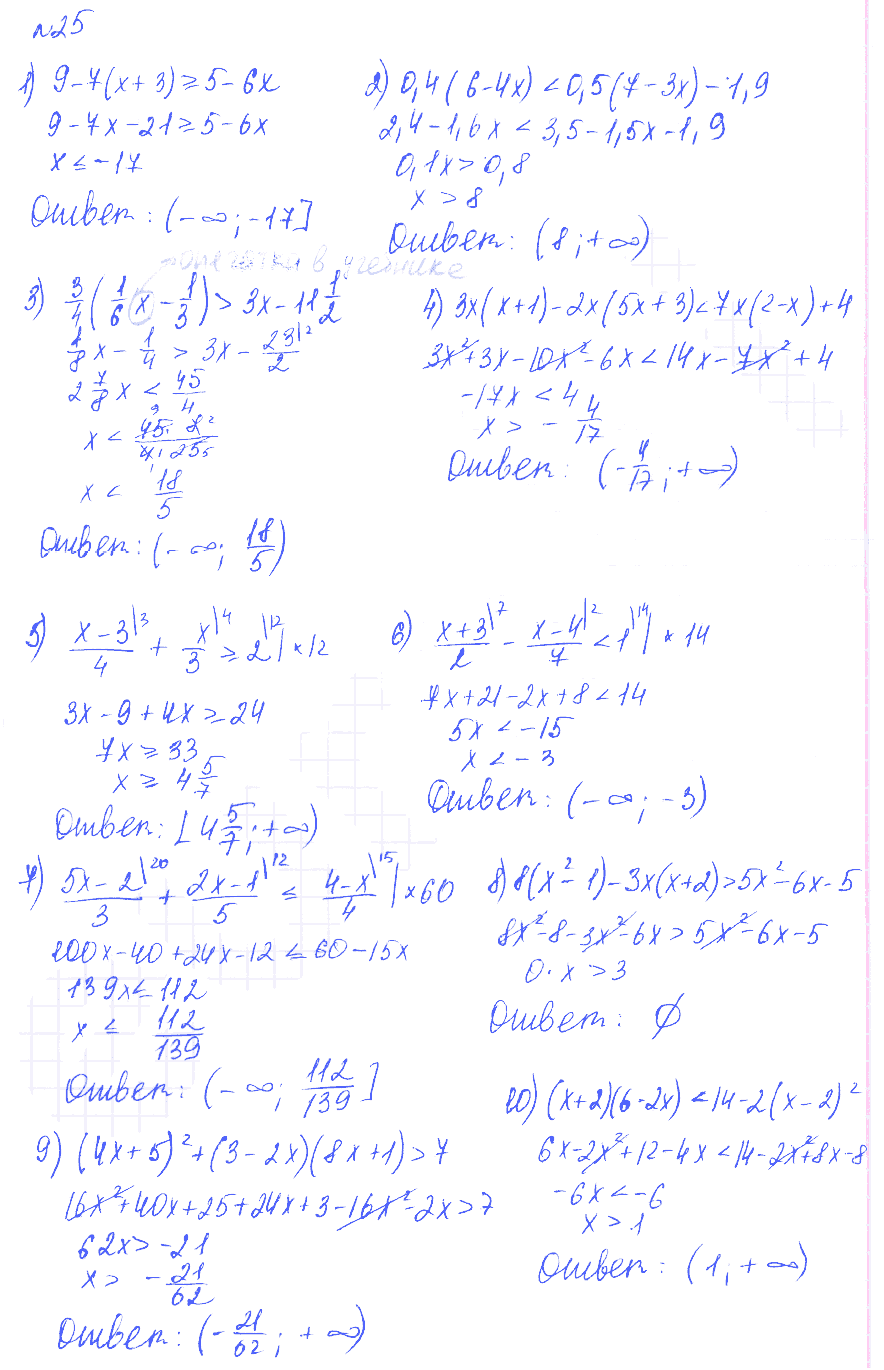 №25
1) 9-7(x+3)≥5-6x
9-7x-21≥5-6x
x≤-17
Ответ: (-∞;-17]
2) 0,4(6-4x)<0,5(7-3x)-1,9
2,4-1,6x<3,5-1,5x-1,9
0,1x>0,8
x>8
Ответ: (8;+∞)
опечатка в учебнике
3) 3/4(1/6x-1/3)>3x-11 1/2
1/8x-1/4>3x-23/2|2
2 7/8x<45/4
x<45·8/4·23
x<18/5
Ответ: (-∞; 18/5)
4) 3x(x+1)-2x(5x+3)<7x(2-x)+4
3x²+3x-10x²-6x<14x-7x²+4
-17x<4
x>-4/17
Ответ: (-4/17;+∞)
5) (x-3)/4|3 + x/3|4 ≥2|12 |×12
3x-9+4x≥24
7x≥33
x≥4 5/7
Ответ: [4 5/7;+∞)
6) (x+3)/2|7 - (x-4)/7|2 <1|14 |×14
7x+21-2x+8<14
5x<-15
x<-3
Ответ: (-∞;-3)
7) (5x-2)/3|20 + (2x-1)/5|12 ≤ (4-x)/4|15 |×60
100x-40+24x-12≤60-15x
139x≤112
x≤112/139
Ответ: (-∞; 112/139]
8) 8(x²-1)-3x(x+2)>5x²-6x-5
8x²-8-3x²-6x>5x²-6x-5
0·x>3
Ответ: ∅
9) (4x+5)²+(3-2x)(8x+1)>7
16x²+40x+25+24x+3-16x²-2x>7
62x>-21
x>-21/62
Ответ: (-21/62;+∞)
10) (x+2)(6-2x)<14-2(x-2)²
6x-2x²+12-4x<14-2x²+8x-8
-6x<-6
x>1
Ответ: (1;+∞)